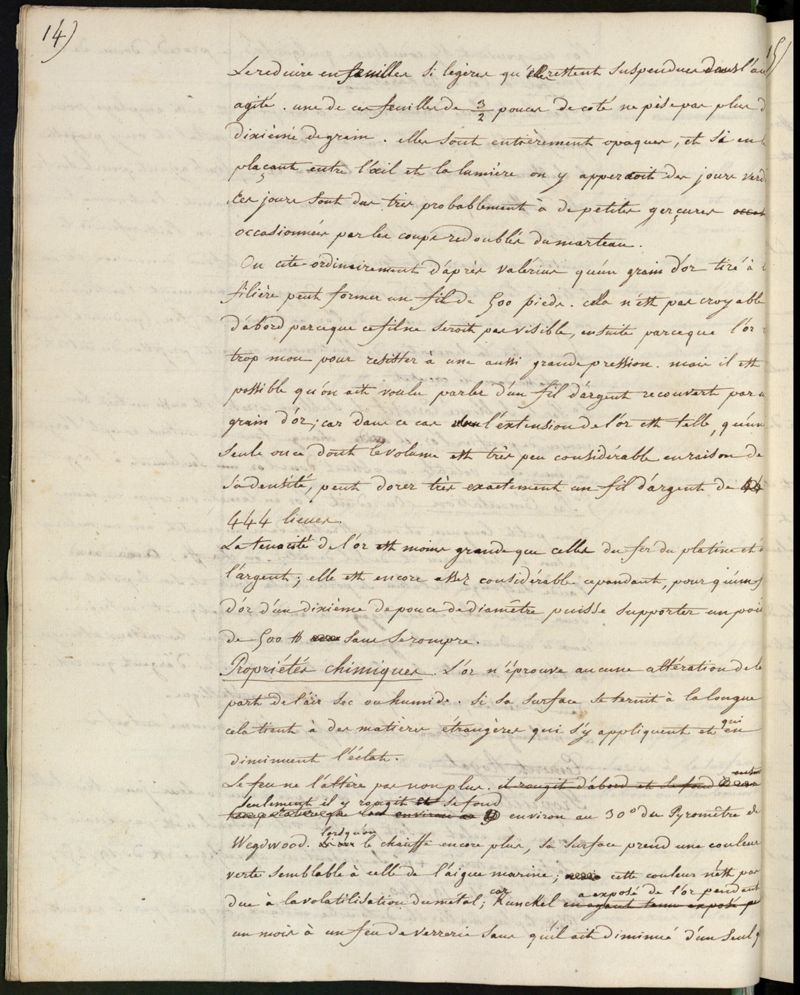 14)
Le reduire en feuilles si legères qu'elles restent suspendues dans l'air
agité. une de ces feuilles de 3/2 pouces de coté ne pèse pas plus d
dixième de grain. elles sont entièrement opaques, et si en
plaçant entre l'œil et la lumière on y apperçoit des jours verd
Ces jours sont dus très probablement à de petites gerçures
occasionnées par les coups redoublés du marteau.
On cite ordinairement d'après valérius qu'un grain d'or tiré à
filière peut former un fil de 500 pieds. cela n'est pas croyable
d'abord parceque ce fil ne seroit pas visible, ensuite parceque l'or
trop mou pour resister à une aussi grande pression. mais il est
possible qu'on ait voulu parler d'un fil d'argent recouvert par u
grain d'or; car dans ce cas l'extension de l'or est telle, qu'une
seule once dont le volume est très peu considérable en raison de
sa densité, peut dorer très exactement un fil d'argent de
444 lieues.
La tenacité de l'or est moins grande que celles du fer du platine et d
l'argent; elle est encore assez considérable cependant, pour qu'un f
d'or d'un dixième de pouce de diamêtre puisse supporter un poi
de 500 ℔ sans se rompre.
Propriétés chimiques. L'or n'éprouve aucune altération de la
part de l'air sec ou humide. si sa surface se ternit à la longue
cela tient à des matieres étrangères qui s'y appliquent et qui en
diminuent l'éclat.
Le feu ne l'altère pas non plus. il rougit d'abord et se fond
seulement il y rougit et se fond
environ au 30° du Pyromêtre de
Wegdwood. lorsqu'on le chauffe encore plus, sa surface prend une couleur
verte semblable à celle de l'aigue marine; cette couleur n'est pas
due à la volatilisation du metal; car Kunckel a exposé de l'or pendant
un mois à un feu de verrerie sans qu'il ait diminué d'un seul g